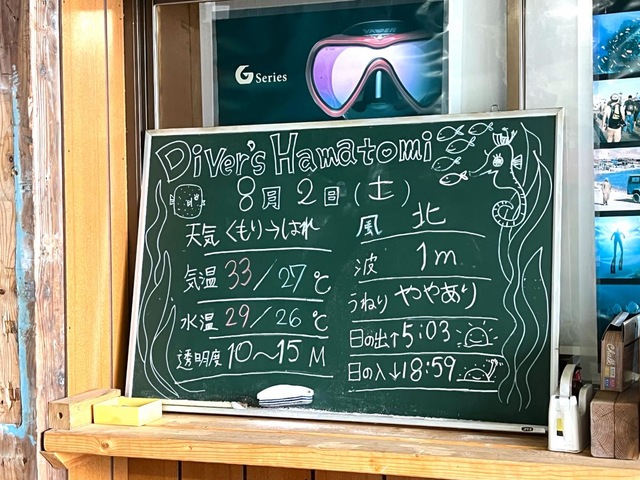 G Series
Diver's Hamatomi
8月2日(土)
天気 くもり→はれ
気温 33/27℃
水温 29/26℃
透明度 10〜15M
風 北
波 1m
うねり ややあり
日の出↑5:03
日の入↓18:59